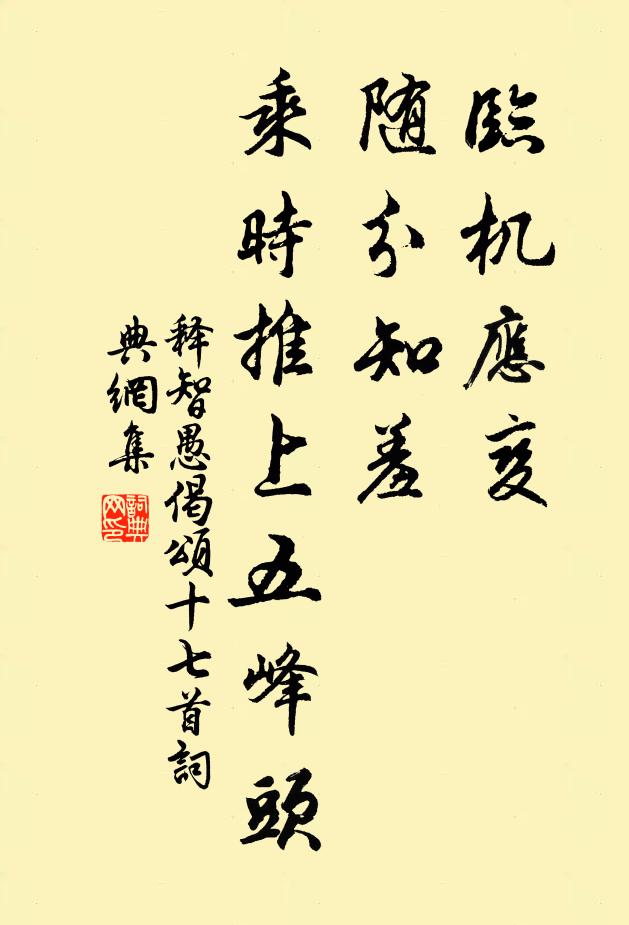 臨机應变
随分知羞
乘時推上五峰頭
释智愚偈頌十七首詞
典網集
詞典网印